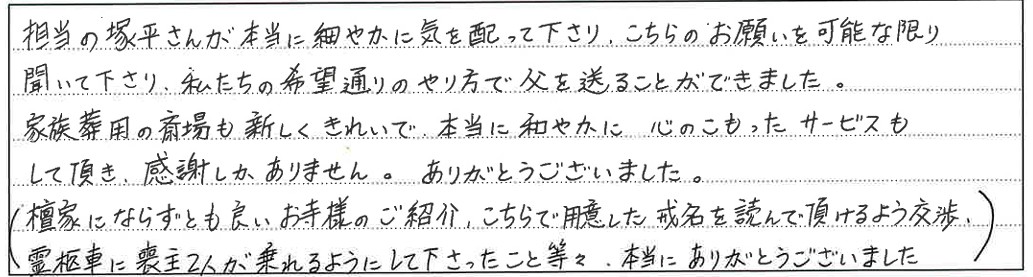 担当の塚平さんが本当に細やかに気を配って下さり、こちらのお願いを可能な限り
聞いて下さり、私たちの希望通りのやり方で父を送ることができました。
家族葬用の斎場も新しくきれいで、本当に和やかに 心のこもったサービスも
して頂き、感謝しかありません。 ありがとうございました。
(檀家にならずとも良いお寺様のご紹介、こちらで用意した戒名を読んで頂けるよう交渉、
霊柩車に喪主2人が乗れるようにして下さったこと等々、本当にありがとうございました)